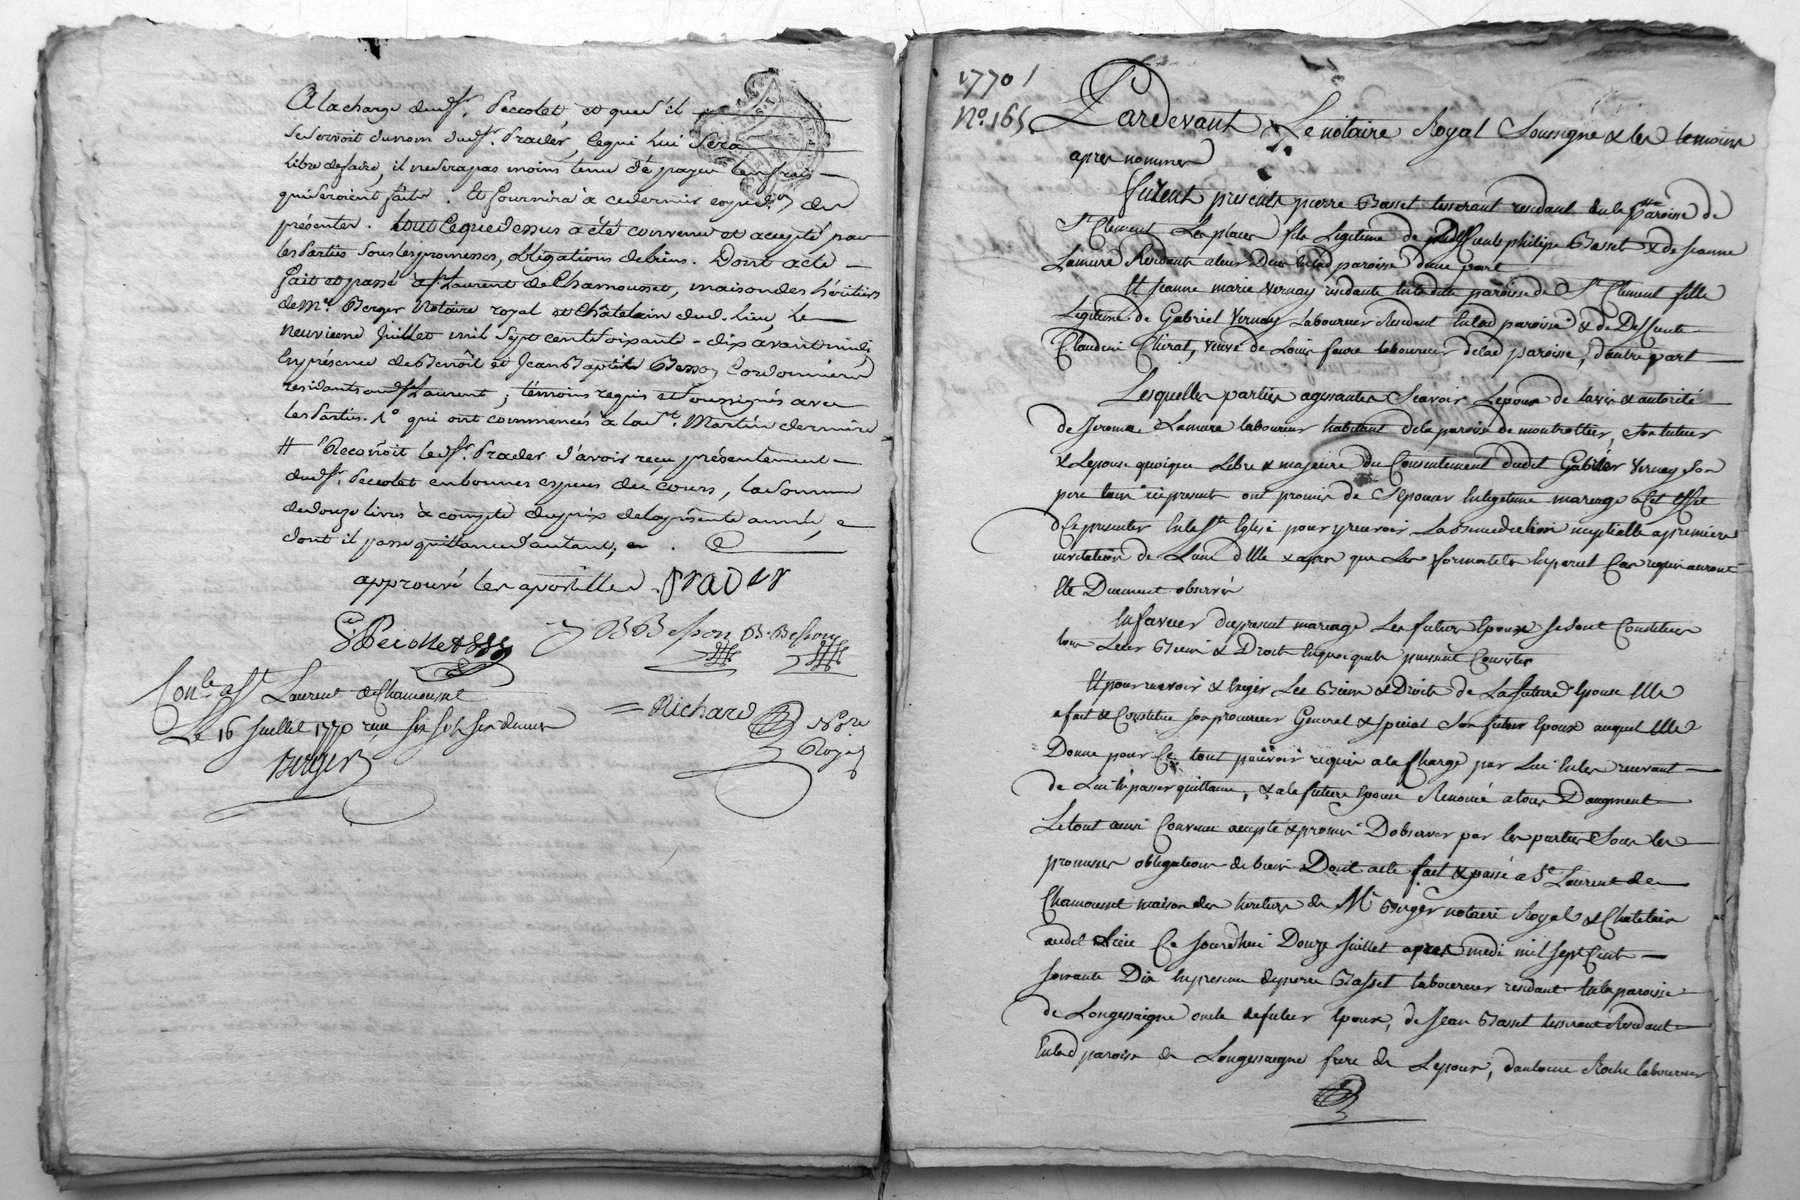 A la charge dud. Sr. Peccolet, et que s'il
se servoit du nom dud. Sr. Prader, ce qui lui sera
libre de faire, il ne sera pas moins tenu de payer les frais
qui seroient faits. Et fournira à ce dernier expedion. des
présentes. tout ce que dessus a été convenu et accepté par
les Parties sous les promesses, obligations de biens. Dont acte
fait et passé à St. Laurent de Chamousset, maison des héritiers
de Me. Berger Notaire royal et Châtelain dud. lieu, Le
neuvieme Juillet mil sept cent soixante-dix avant midi
En présence de Benoît et Jean Baptiste Besson Cordonniers
residants aud. St Laurent, témoins requis et soussignés avec
les Parties. qui ont commencés à la St. Martin derniere
# Reconoit led. Sr. Prader d'avoir reçu présentement
dud. Sr. Peccolet en bonnes especes du cours, la somme
de douze livres à compte du prix de la présente année,
dont il passe quittance d'autant,
approuvé les apostilles. Prader
Peccollet
JB Besson B. Besson
Conlé a St Laurent de Chamousset
Le 16 juillet 1770 reçu
Richard No.re
Royal
Berger
1770
No. 165
Pardevant Le notaire Royal Soussigné & les temoins
apres nommes
furent presents pierre Basset tisserant residant en la paroisse de
St Clement Les places fils Legitime de deffunt philipe Basset & de Jeanne
Lamure Residante a leur Dite paroisse d'une part
Et Jeanne marie vernay residante en lad. paroisse de St Clement fille
Legitime de Gabriel Vernay Laboureur Residant en lad paroisse & de Deffunte
Claudine Chirat, veuve de Louis faure laboureur de lad paroisse, d'autre part
Lesquelles parties agissantes Scavoir Lepoux de lavis & autorité
de Jerome Lamure laboureur habitant de la paroisse de montrottier, son tuteur
& Lepouse quoique Libre & majeure du Consentement dudit Gabriel vernay son
pere ici present ont promis de Sepouser en legitime mariage & a cet effet
de se presenter en la Ste Eglise pour y recevoir La benediction nuptialle a premiere
invitation de L'un d'Elle & apres que Les formalités en pareil Cas requises auront
Ete Duement observé
En faveur du present mariage Les futurs Epoux se sont Constitues
tous Leurs Biens & Droits en quoi quils puissent Consister
Et pour recevoir & Exiger Les Biens & Droits de La future Epouse Elle
a fait & Constitue son procureur General & special Son futur Epoux auquel Elle
Donne pour Ce tout pouvoir requis a la Charge par Lui en les recevant
de Lui en passer quittance, & a la future Epouse Renoncé a tous Daugment
Le tout ainsi Convenu accepté & promis D'observer par les parties Sous les
promesses obligations de biens Dont acte fait & passé a St Laurent de
Chamousset maison des heritiers de Me Berger notaire Royal & Chatelain
audit Lieu Ce Jourd'hui Douze Juillet apres midi mil sept Cent
soixante Dix En presence de pierre Basset laboureur residant en la paroisse
de Longessaigne oncle de futur Epoux, de Jean Basset tisserant Residant
En lad paroisse de Longessaigne frere de Lepoux, d'antoine Roche laboureur